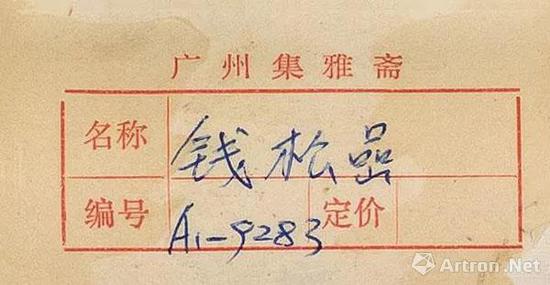 广州集雅斋
名称 钱松喦
编号 A1-9283 定价
Artron.Net